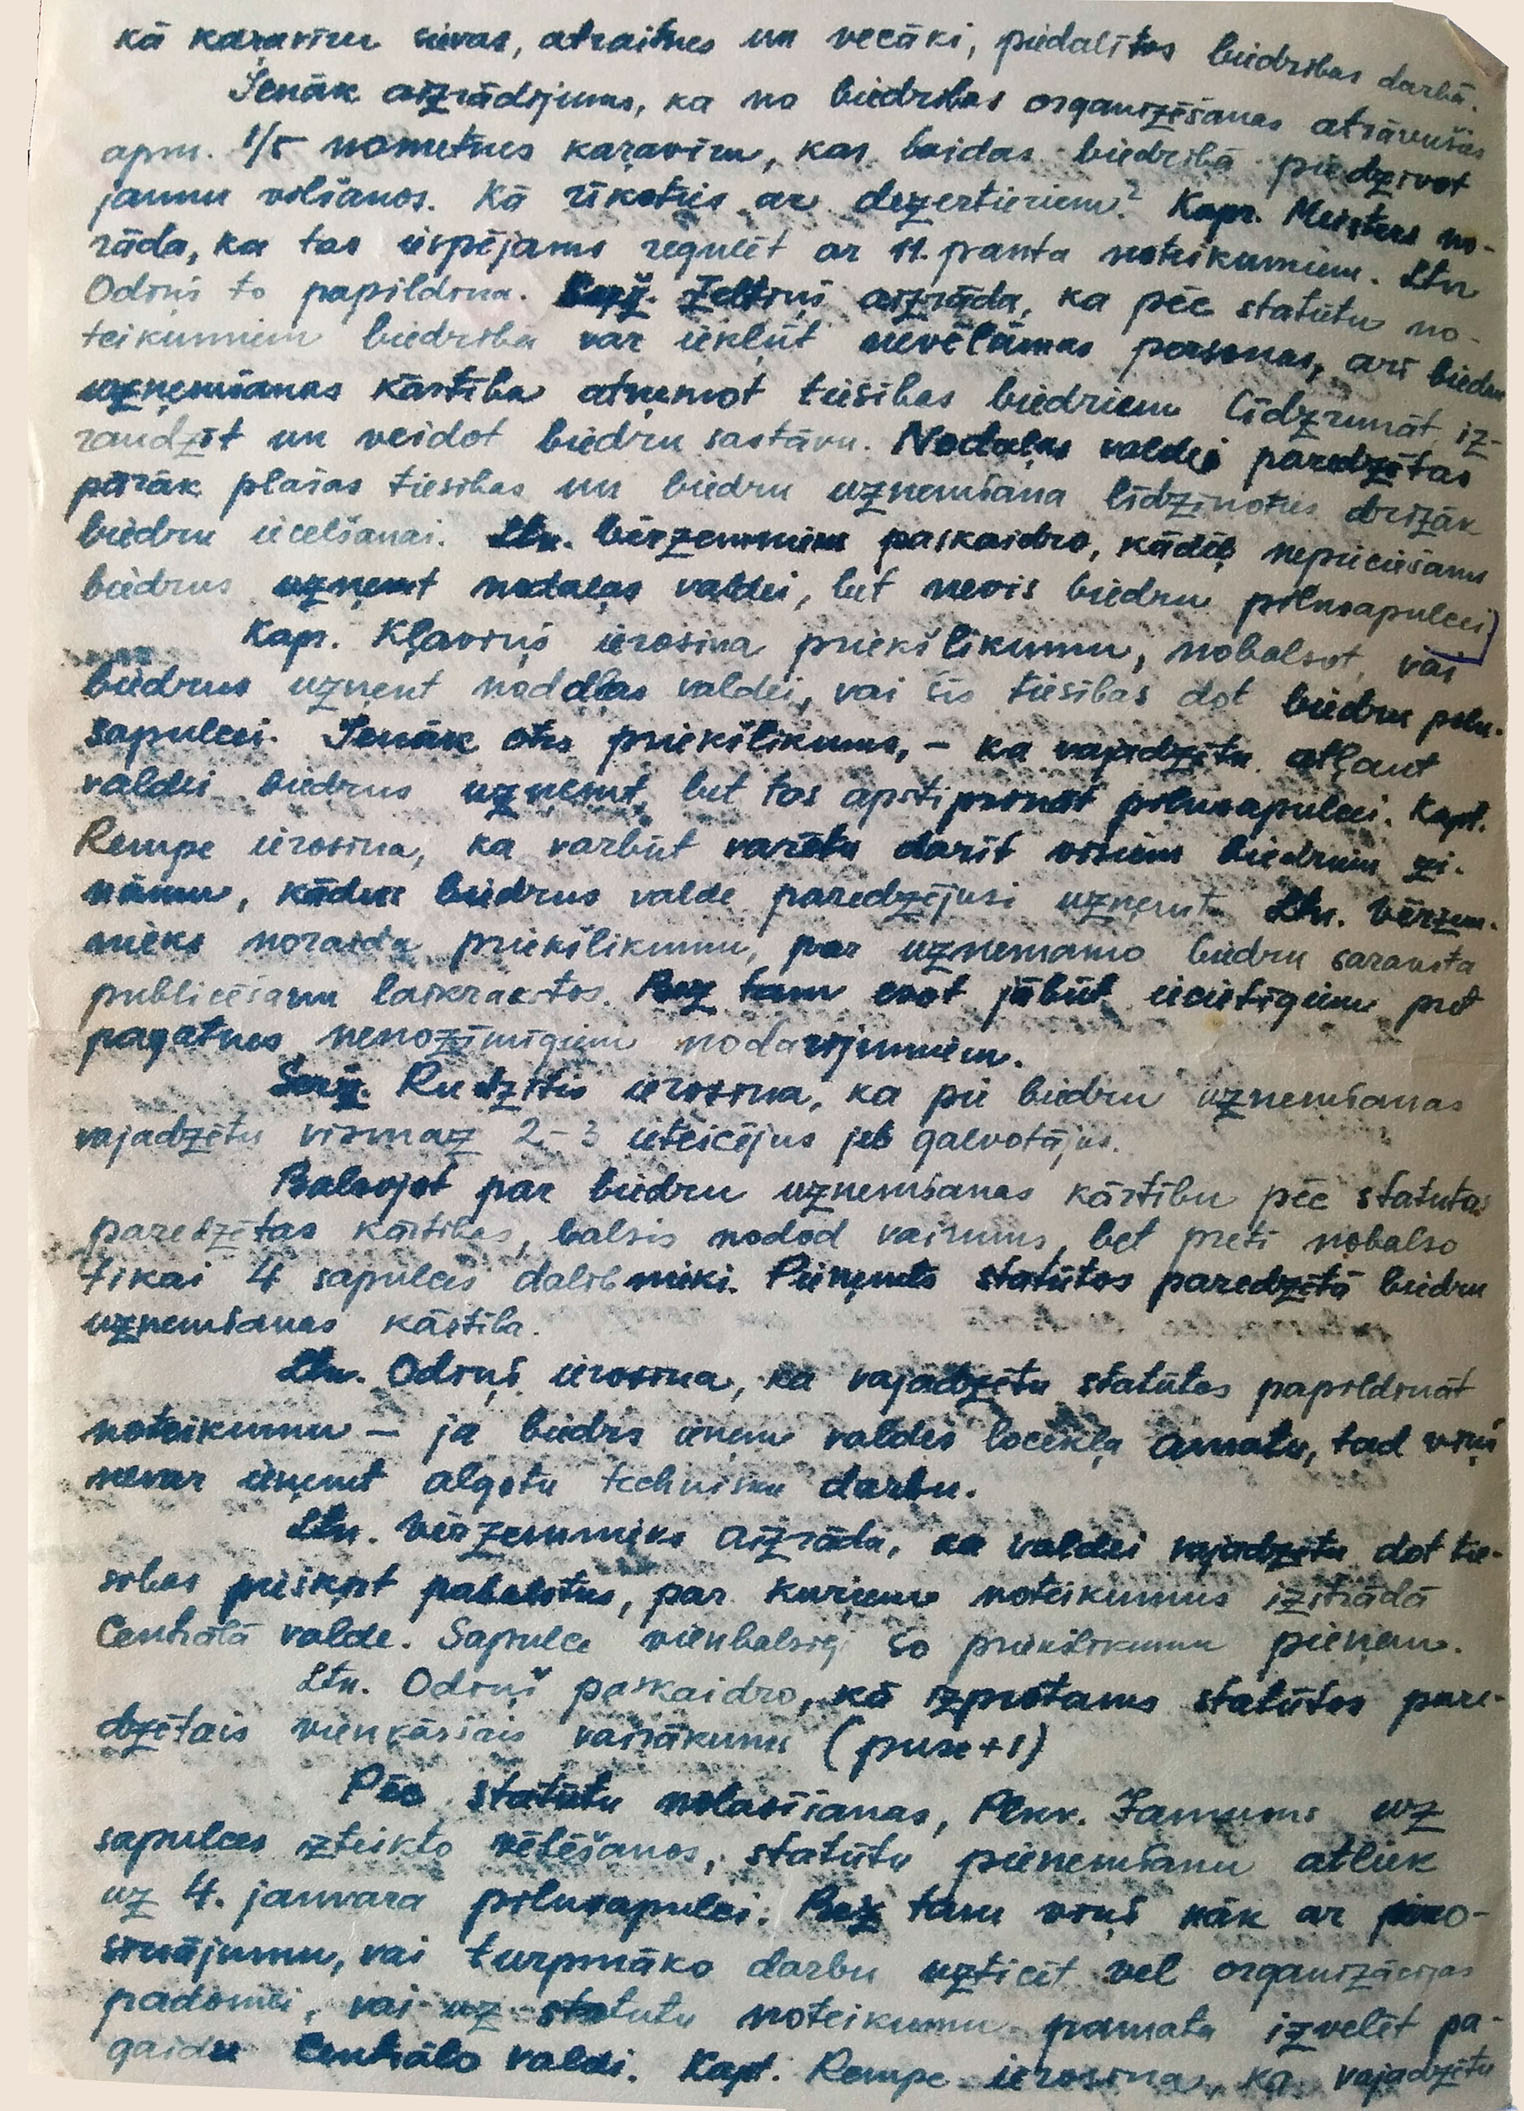 kā karavīru sievas, atraitnes un vecāki, piedalītos biedrības darbā.
Ienāk aizrādījums, ka no biedrības organizēšanas atrāvušās
apm. 1/5 nometnes karavīru, kas baidas biedrībā piedzīvot
jaunu vilšanos. Kā rīkoties ar dezertieriem? Kapr. Meisters no-
rāda, ka tas iespējams regulēt ar 11. panta noteikumiem. Ltn
Odiņš to papildina. Serž. Zeltiņš aizrāda, ka pēc statūtu no-
teikumiem biedrībā var iekļūt nevēlamas personas, arī biedru
uzņemšanas kārtība atņemot tiesības biedriem līdzrunāt, iz-
raudzīt un veidot biedru sastāvu. Nodaļas valdei paredzētas
pārāk plašas tiesības un biedru uzņemšana līdzinoties drīzāk
biedru iecelšanai. Ltn. Vērzemnieks paskaidro, kādēļ nepieciešams
biedrus uzņemt nodaļas valdei, bet nevis biedru pilnsapulcei
Kapr. Kļaviņš ierosina priekšlikumu, nobalsot, vai
biedrus uzņemt nodaļas valdei, vai šīs tiesības dot biedru piln-
sapulcei. Ienāk otrs priekšlikums, – ka vajadzētu atļaut
valdei biedrus uzņemt, bet tos apstiprināt pilnsapulcei. Kapt.
Rempe ierosina, ka varbūt varētu darīt visiem biedriem zi-
nāmu, kādus biedrus valde paredzējusi uzņemt. Ltn. Vērzem-
nieks noraida priekšlikumu, par uzņemamo biedru saraksta
publicēšanu laikrakstos. Bez tam esot jābūt iecietīgiem pret
pagātnes nenozīmīgiem nodarījumiem.
Serž. Rudzītis ierosina, ka pie biedru uzņemšanas
vajadzētu vismaz 2–3 ieteicējus jeb galvotājus.
Balsojot par biedru uzņemšanas kārtību pēc statūtos
paredzētas kārtības, balsis nodod vairums, bet pretī nobalso
tikai 4 sapulces dalībnieki. Pieņemta statūtos paredzētā biedru
uzņemšanas kārtība.
Ltn. Odiņš ierosina, ka vajadzētu statūtos papildināt
noteikumu – ja biedrs ieņem valdes locekļa amatu, tad viņš
nevar ieņemt algotu technisku darbu.
Ltn. Vērzemnieks aizrāda, ka valdei vajadzētu dot tie-
sības piešķirt pabalstus, par kuriem noteikumus izstrādā
Centrālā valde. Sapulce vienbalsīgi šo priekšlikumu pieņem.
Ltn. Odiņš paskaidro, kā izprotams statūtos pare-
dzētais vienkāršais vairākums (puse + 1)
Pēc statūtu nolasīšanas, Plkv. Jansons uz
sapulces izteikto vēlēšanos, statūtu pieņemšanu atliek
uz 4. janvara pilnsapulci. Bez tam viņš nāk ar piero-
sinājumu, vai turpmāko darbu uzticēt vēl organizācijas
padomei, vai uz statutu noteikumu pamata izvēlēt pa-
gaidu Centrālo valdi. Kapt. Rempe ierosina, ka vajadzētu